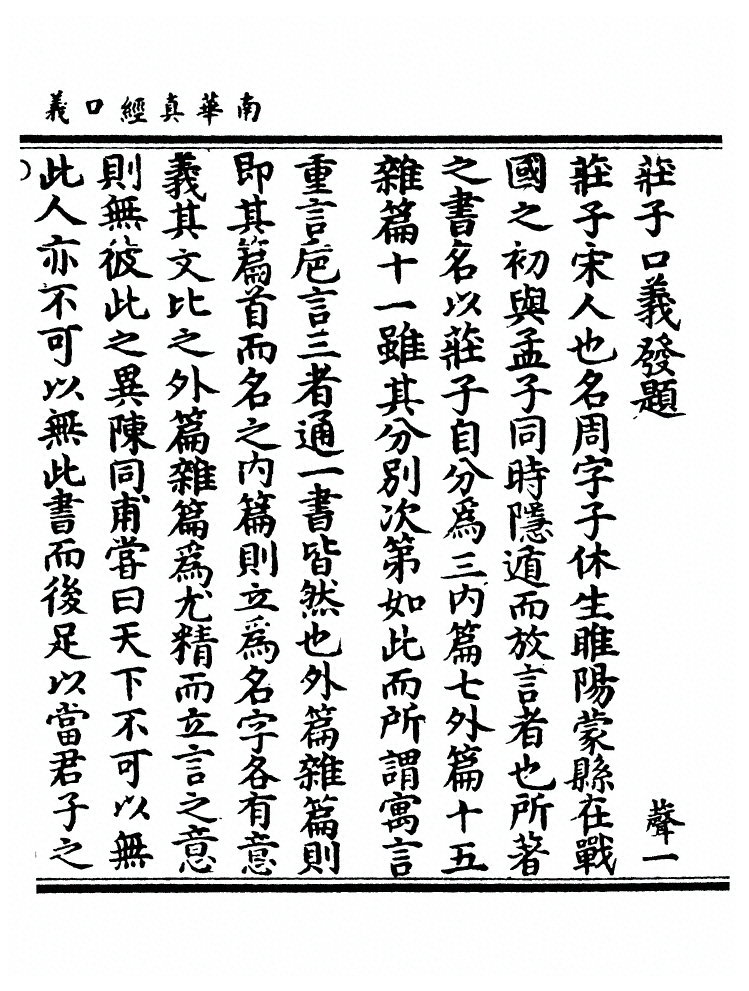 南華真經口義
莊子口義發題
聲一
莊子宋人也名周字子休生睢陽蒙縣在戰
國之初與孟子同時隱遁而放言者也所著
之書名以莊子自分為三内篇七外篇十五
雜篇十一雖其分别次第如此而所謂寓言
重言巵言三者通一書皆然也外篇雜篇則
即其篇首而名之内篇則立為名字各有意
義其文比之外篇雜篇為尤精而立言之意
則無彼此之異陳同甫甞曰天下不可以無
此人亦不可以無此書而後足以當君子之